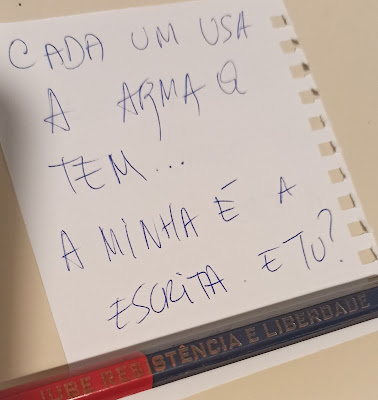 CADA UM USA
A ARMA Q
TEM...
A MINHA É A
ESCRITA. E TU?
STÊNCIA E LIBERDADE